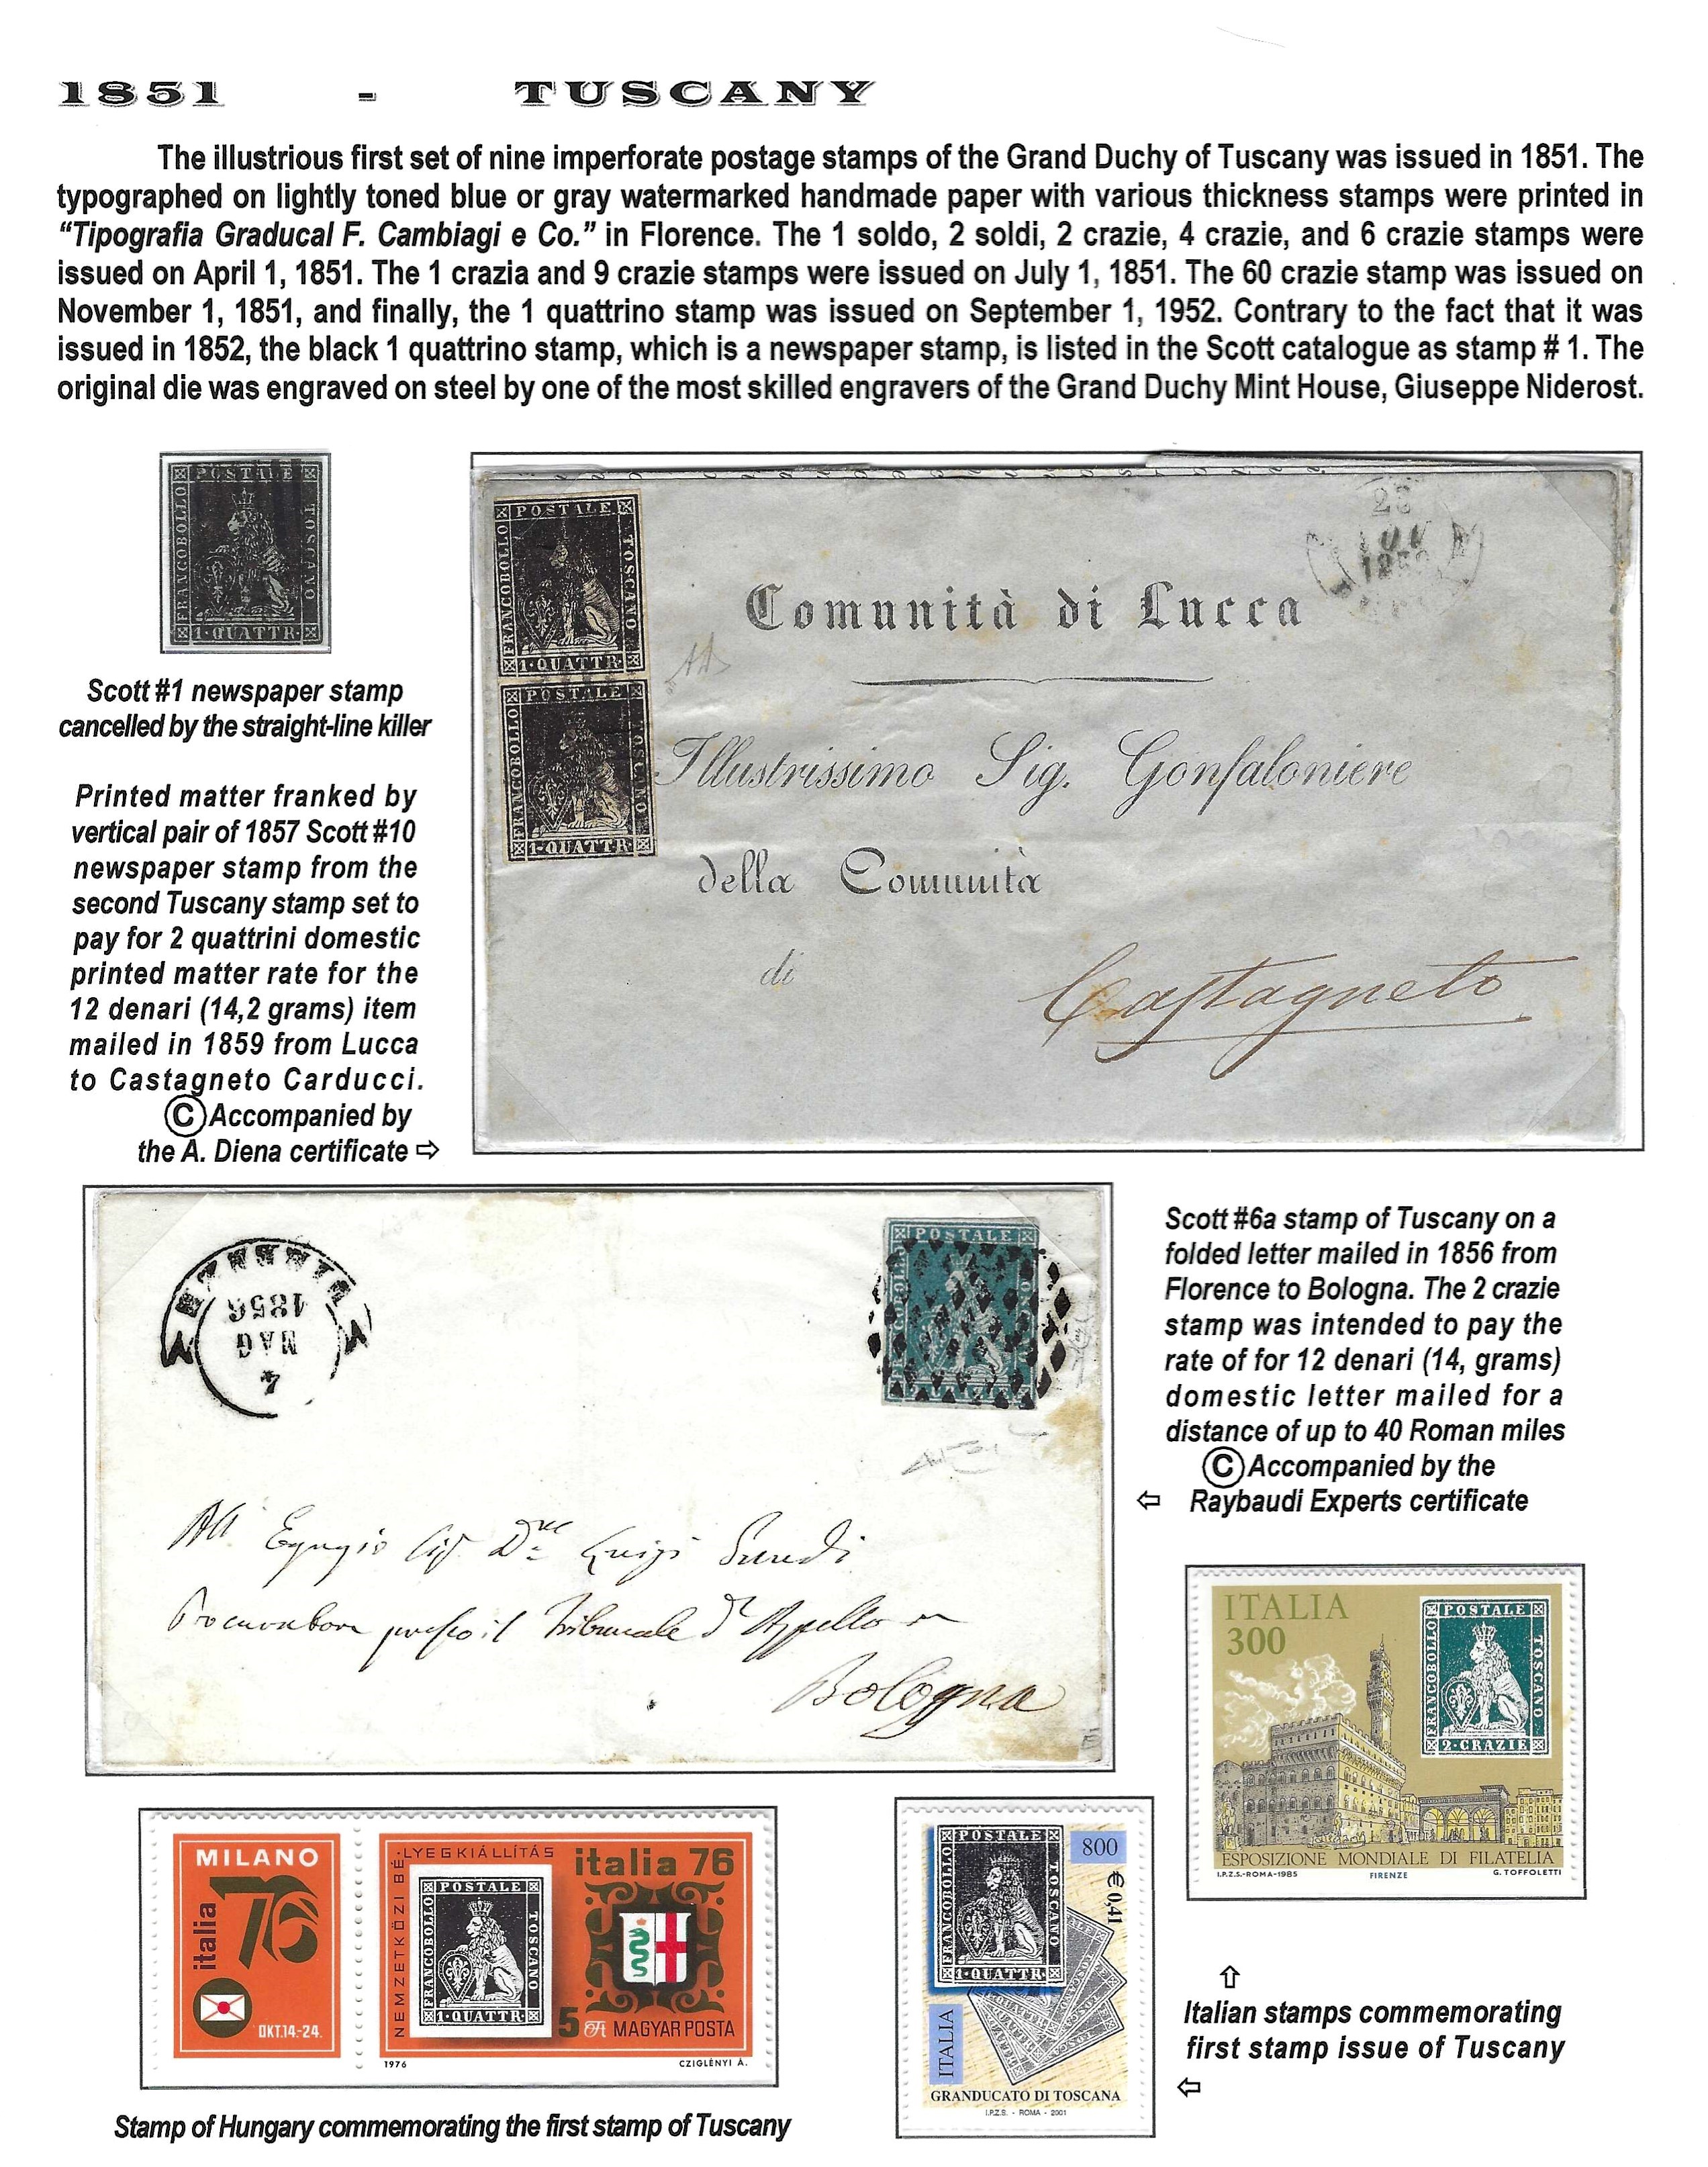 1851 - TUSCANY
The illustrious first set of nine imperforate postage stamps of the Grand Duchy of Tuscany was issued in 1851. The
typographed on lightly toned blue or gray watermarked handmade paper with various thickness stamps were printed in
“Tipografia Graducal F. Cambiagi e Co.” in Florence. The 1 soldo, 2 soldi, 2 crazie, 4 crazie, and 6 crazie stamps were
issued on April 1, 1851. The 1 crazia and 9 crazie stamps were issued on July 1, 1851. The 60 crazie stamp was issued on
November 1, 1851, and finally, the 1 quattrino stamp was issued on September 1, 1952. Contrary to the fact that it was
issued in 1852, the black 1 quattrino stamp, which is a newspaper stamp, is listed in the Scott catalogue as stamp # 1. The
original die was engraved on steel by one of the most skilled engravers of the Grand Duchy Mint House, Giuseppe Niderost.
POSTALE
FRANCOBOLLO
TOSCANO
1·QUATTR·
Scott #1 newspaper stamp
cancelled by the straight-line killer
Printed matter franked by
vertical pair of 1857 Scott #10
newspaper stamp from the
second Tuscany stamp set to
pay for 2 quattrini domestic
printed matter rate for the
12 denari (14,2 grams) item
mailed in 1859 from Lucca
to Castagneto Carducci.
©Accompanied by
the A. Diena certificate ⇨
POSTALE
FRANCOBOLLO
TOSCANO
1·QUATTR·
POSTALE
FRANCOBOLLO
TOSCANO
1·QUATTR·
AD
Comunità di Lucca
Illustrissimo Sig. Gonfaloniere
della Comunità
di
Castagneto
1856
MAG
4
POSTALE
Luigi
Tribunale d'Appello
Bologna
Scott #6a stamp of Tuscany on a
folded letter mailed in 1856 from
Florence to Bologna. The 2 crazie
stamp was intended to pay the
rate of for 12 denari (14, grams)
domestic letter mailed for a
distance of up to 40 Roman miles
©Accompanied by the
⇦ Raybaudi Experts certificate
ITALIA
300
POSTALE
FRANCOBOLLO
TOSCANO
2·CRAZIE
ESPOSIZIONE MONDIALE DI FILATELIA
I.P.Z.S.-ROMA-1985 FIRENZE G. TOFFOLETTI
MILANO
italia
76
OKT.14.-24.
NEMZETKÖZI BÉ-
LYEGKIÁLLÍTÁS
italia 76
POSTALE
FRANCOBOLLO
TOSCANO
1·QUATTR·
5 Ft MAGYAR POSTA
1976 CZIGLÉNYI Á.
Stamp of Hungary commemorating the first stamp of Tuscany
POSTALE
FRANCOBOLLO
TOSCANO
1·QUATTR·
800
€ 0,41
ITALIA
GRANDUCATO DI TOSCANA
I.P.Z.S. - ROMA - 2001
⇧
Italian stamps commemorating
first stamp issue of Tuscany
⇦